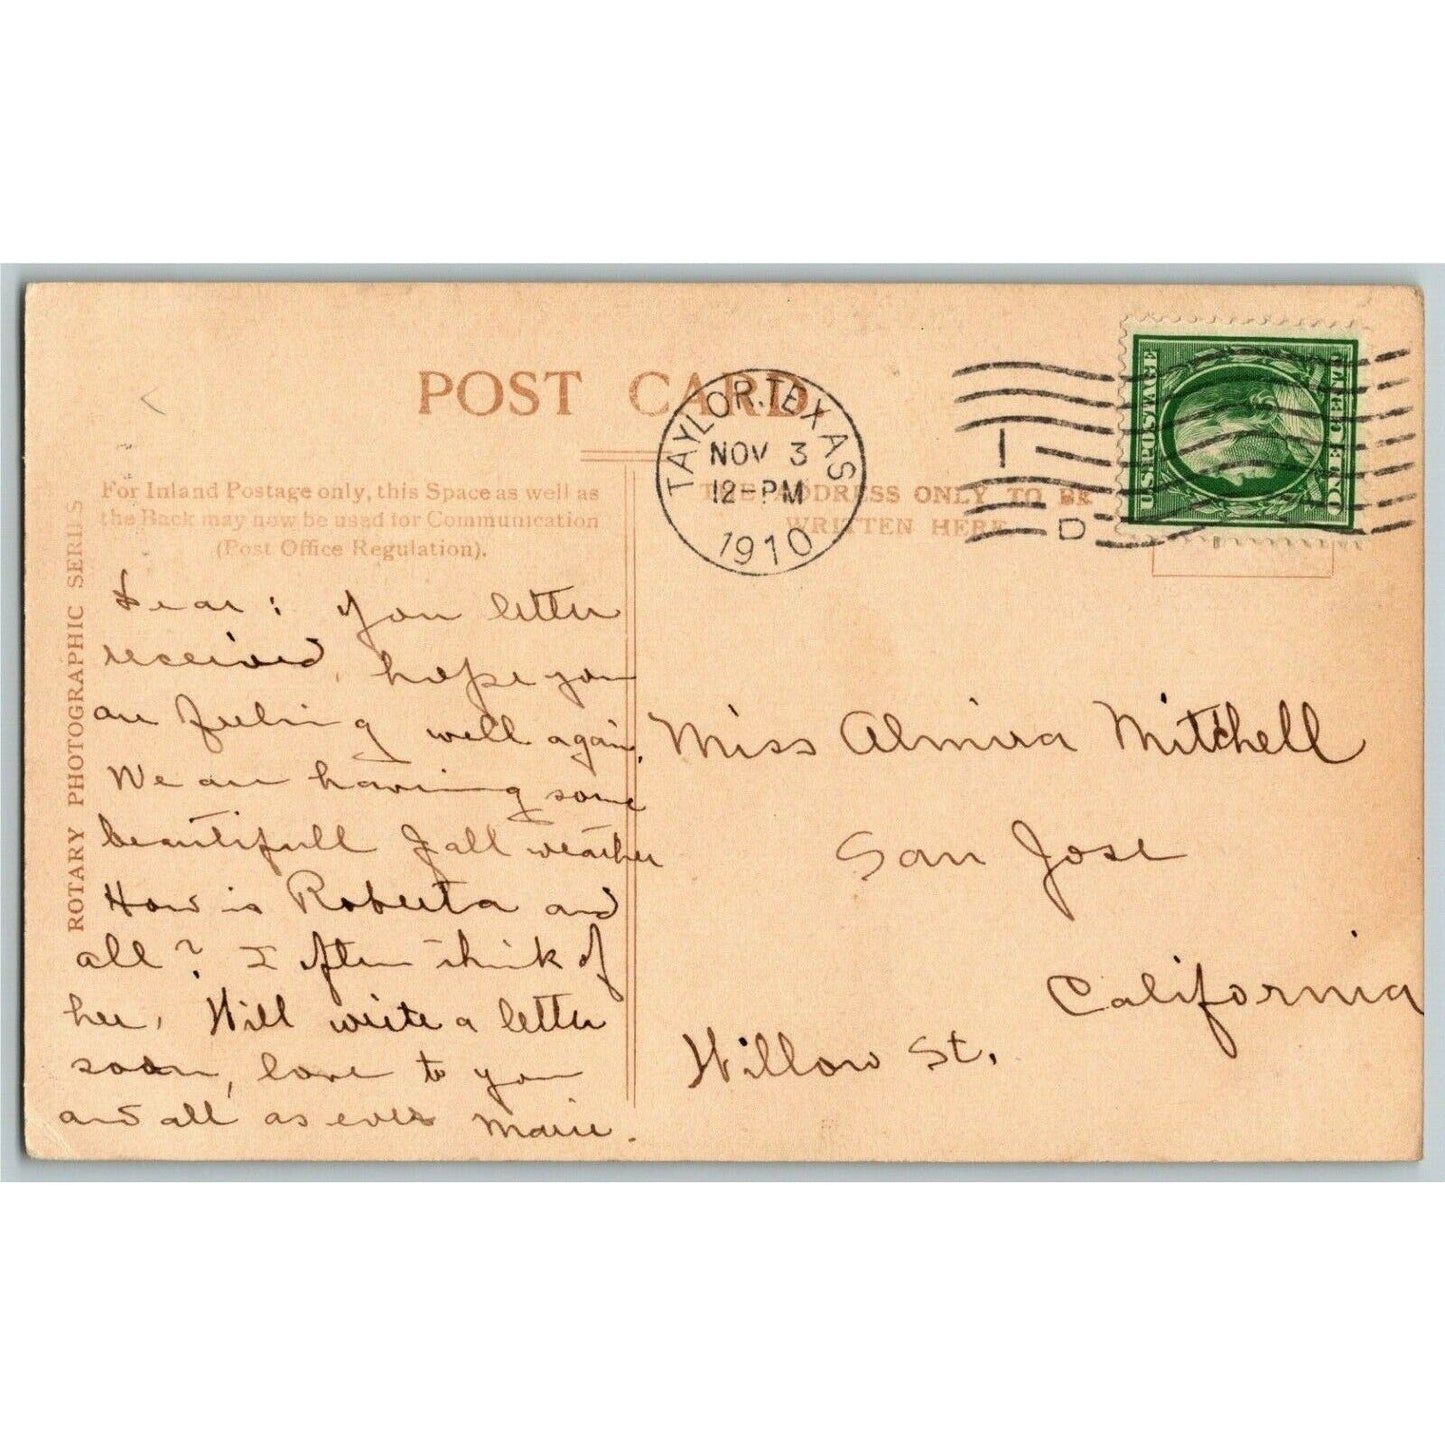 POST CARD
TAYLOR. TEXAS
NOV 3
12-PM
1910
1
D
U.S. POSTAGE
ONE CENT
For Inland Postage only, this Space as well as
the Back may now be used for Communication
(Post Office Regulation).
THE ADDRESS ONLY TO BE
WRITTEN HERE
ROTARY PHOTOGRAPHIC SERIES
Dear: You letter
received, hope you
are feeling well again,
We are having some
beautifull Fall weather
How is Roberta and
all? I often think of
her, Will write a letter
soon, love to you
and all as ever Marie.
Miss Almira Mitchell
San Jose
California
Willow St.